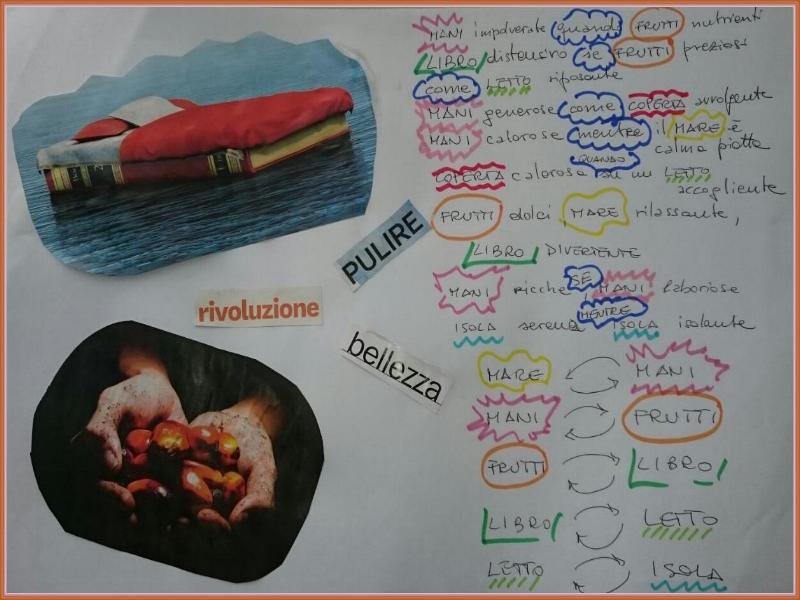 MANI impolverate quando FRUTTI nutrienti
LIBRO distensivo se FRUTTI preziosi
come LETTO riposante
MANI generose come COPERTA avvolgente
MANI calorose mentre il MARE è
calma piatta
QUANDO
COPERTA calorosa su un LETTO
accogliente
FRUTTI dolci, MARE rilassante,
LIBRO DIVERTENTE
MANI ricche SE MANI laboriose
MENTRE
ISOLA serena ISOLA isolante
PULIRE
rivoluzione
bellezza
MARE MANI
MANI FRUTTI
FRUTTI LIBRO
LIBRO LETTO
LETTO ISOLA